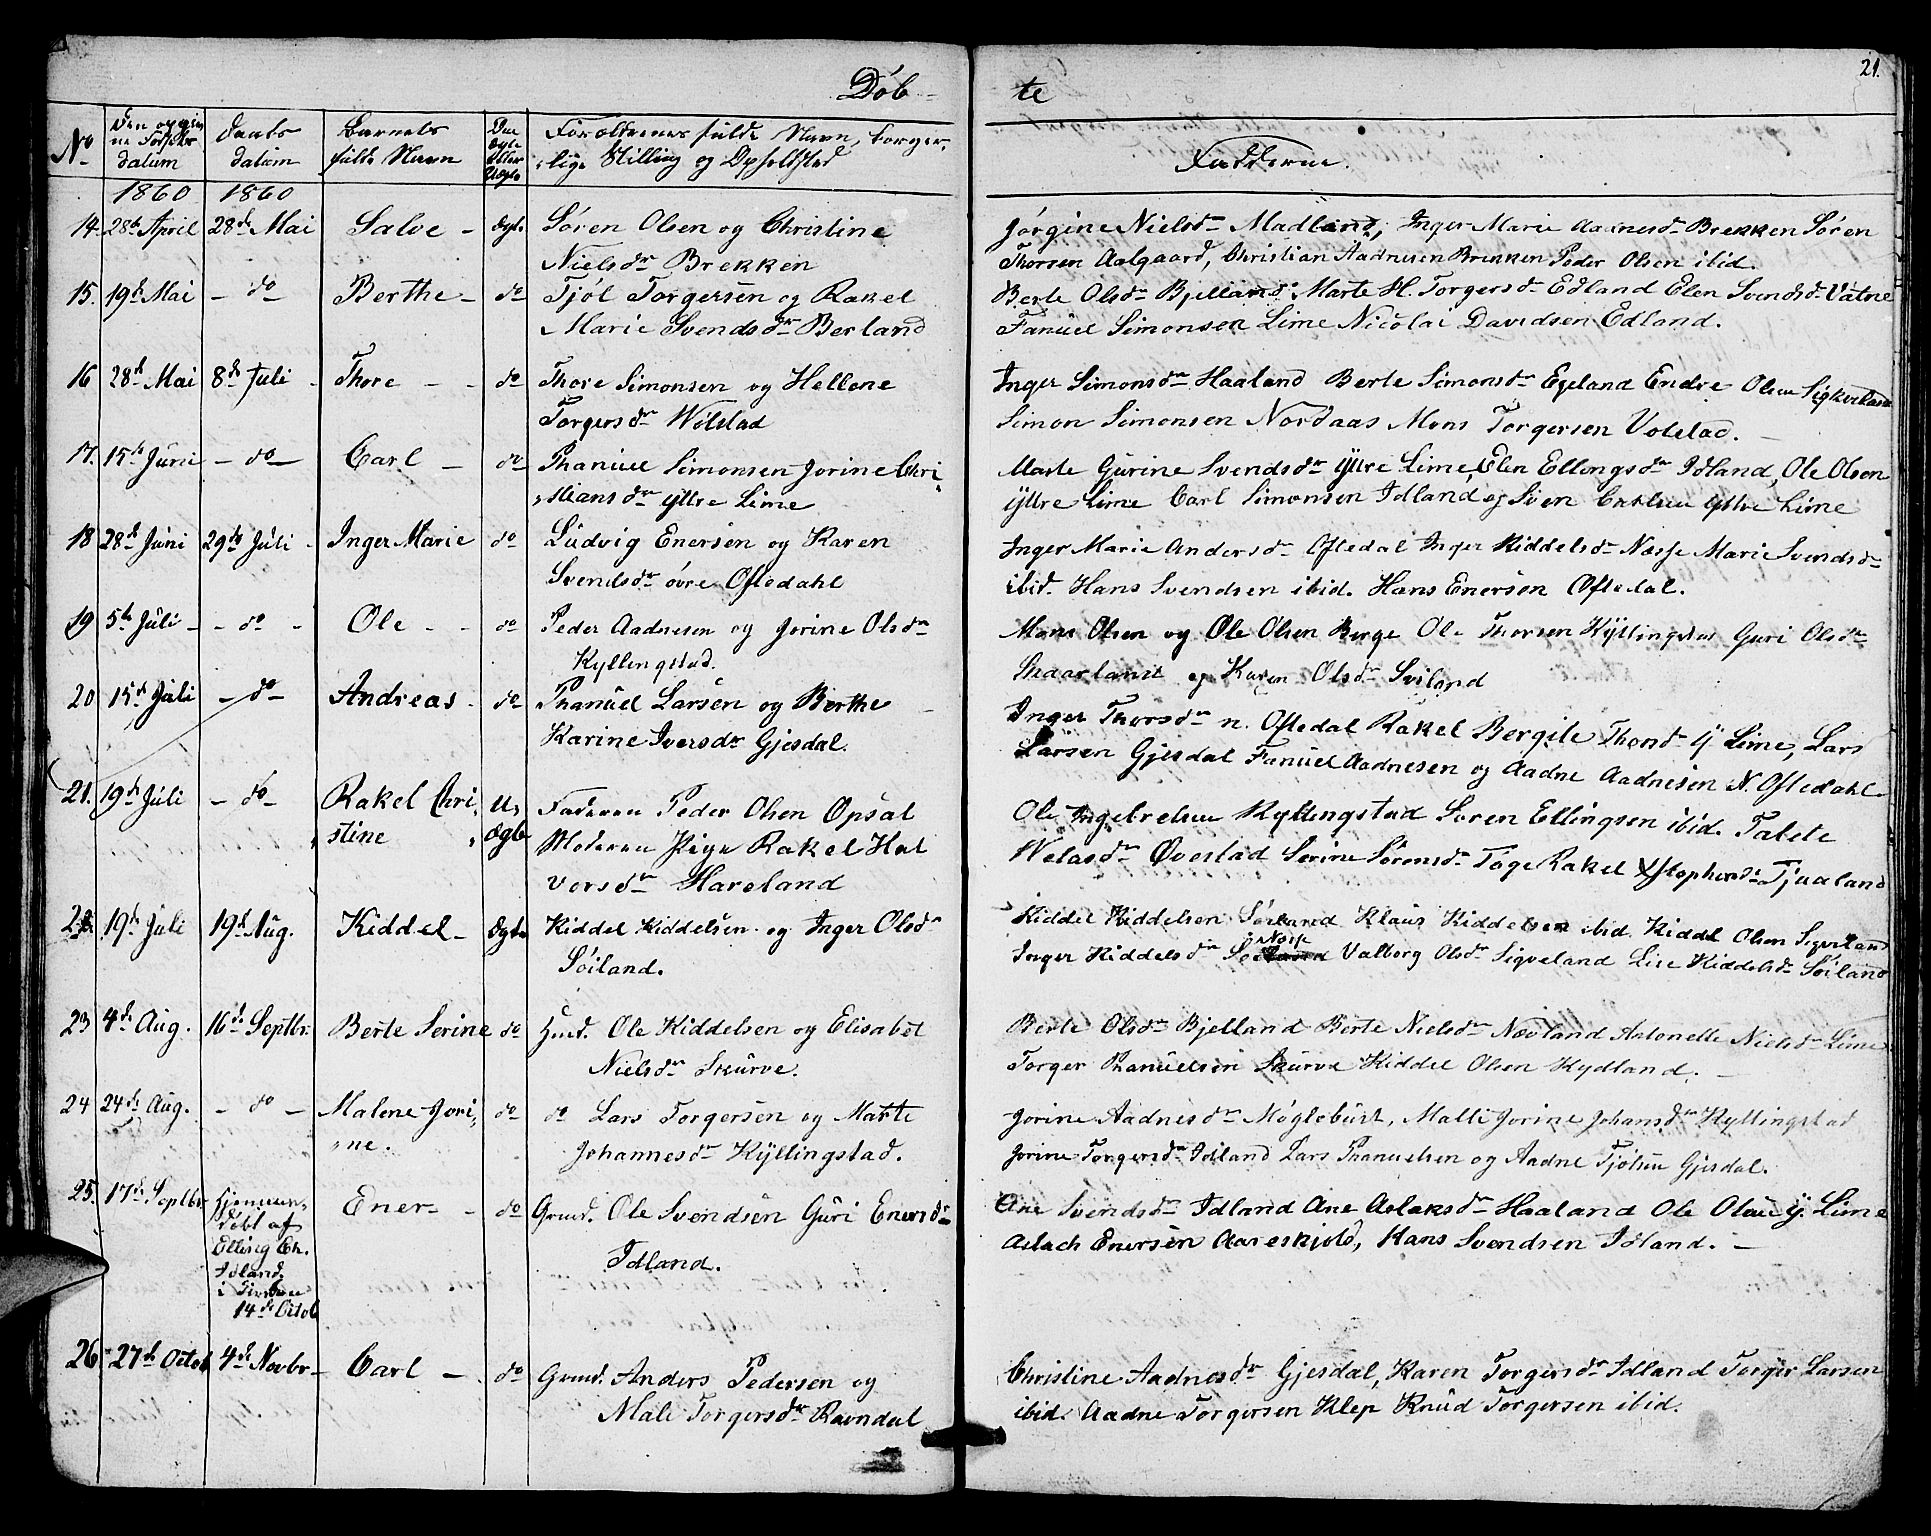 Döb-
te
21.
No
datum
Daabs
datum
Barnets
fulde Navn
Forældrenes fulde Navn, borger,
lige Stilling og Opholdsted
Fadderne.
1860
1860
14. 28de April 28de Mai Salve - Ægte Sören Olsen og Christine
Nielsdr Brekken
Jørgine Nielsdr Madland, Inger Marie Aadnesdr Brekken Sören
Thorsen Aalgaard, Christian Aadnesen Brekken Peder Olsen ibid.
15. 19de Mai - do Berthe - do Tjöl Torgersen og Rakel
Marie Svendsdr Berland
Berte Olsdr Bjelland Marte H. Torgersdr Edland Elen Svendsdr Vatne
Fanuel Simonsen Lime Nicolai Davidsen Edland.
16 28de Mai 8de Juli - Thore - - do Thore Simonsen og Hellene
Torgersdr Wölstad
Inger Simonsdr Haaland Berte Simonsdr Egeland Endre Olsen
Simon Simonsen Nordaas Mons Torgersen Volstad. -
17. 15de Juni - do - Carl - do Phanuel Simonsen Jorine Chri,
,stiansdr Yttre Lime
Marte Gurine Svendsdr Yttre Lime, Elen Ellingsdr Idland, Ole Olsen
Yttre Lime Carl Simonsen Idland og Sven Yttre Lime
18 28de Juni 29de Juli - Inger Marie do Ludvig Enersen og Karen
Svendsdr övre Oftedahl
Inger Marie Andersdr Oftedal Inger Kiddelsdr Næsse Marie Svendsdr
ibid. Hans Svendsen ibid. Hans Enersen Oftedal.
19 5te Juli - - do - Ole - - do Peder Aadnesen og Jorine Olsdr
Kyllingstad.
Mons Olsen og Ole Olsen Berge Ole Thorsen Kyllingstad Guri Olsdr
Skaarland og Karen Olsdr Sviland
20 15de Juli - do - Andreas - do Phanuel Larsen og Berthe
Karine Iversdr Gjesdal.
Inger Thorsdr n. Oftedal Rakel Bergite Thorsdr Y Lime, Lars
Larsen Gjesdal Fanuel Aadnesen og Aadne Aadnesen N. Oftedahl.
21. 19de Juli - do - Rakel Chri,
,stine U,
,ægte Faderen Peder Olsen Opsal
Moderen Pige Rakel Hal
vorsdr Hareland
Ole Ingebretsen Kyllingstad Soren Ellingsen ibid. Tabete
Øvestad Serine Sörensdr Rakel Tjaaland
22 19de Juli 19de Aug. Kiddel - Ægte Kiddel Kiddelsen og Inger Olsdr
Söiland.
Kiddel Kiddelsen Söiland Klaus Kiddelsen ibid. Kiddel Olsen Sigveland
Inger Kiddelsdr Næsse Valborg Olsdr Sigveland Lise Kiddelsdr Söiland
23 4de Aug. 16de Septbr. Berte Serine do Huusm. Ole Kiddelsen og Elisabet
Nielsdr Skurve.
Berte Olsdr Bjelland Berte Nielsdr Nævland Antonette Nielsdr Lime
Torger Phanuelsen Skurve Kiddel Olsen Kydland. -
24 24de Aug. - do - Malene Jori,
,ne. do do Lars Torgersen og Marte
Johannesdr Kyllingstad.
Jorine Aadnesdr Möglebust, Malli Jorine Johansdr Kyllingstad
Jorine Torgersdr Idland Lars Phanuelsen og Aadne Tjölsen Gjesdal.
25. 17de Septbr. Hjemme,
döbt af
Elling Ch.
Idland,
i Kirken
14de Octob Ener - - do Grmd. Ole Svendsen Guri Enersdr
Idland.
Ane Svendsdr Idland Ane Aslaksdr Haaland Ole Olsen Y. Lime
Aslach Enersen Aareskjold, Hans Svendsen Idland. -
26 27de Octob 4de Novbr - Carl - do Grmd. Anders Pedersen og
Mali Torgersdr Ravndal
Christine Aadnesdr Gjesdal, Karen Torgersdr Idland Torger Larsen
ibid. Aadne Torgersen Klep Knud Torgersen ibid.